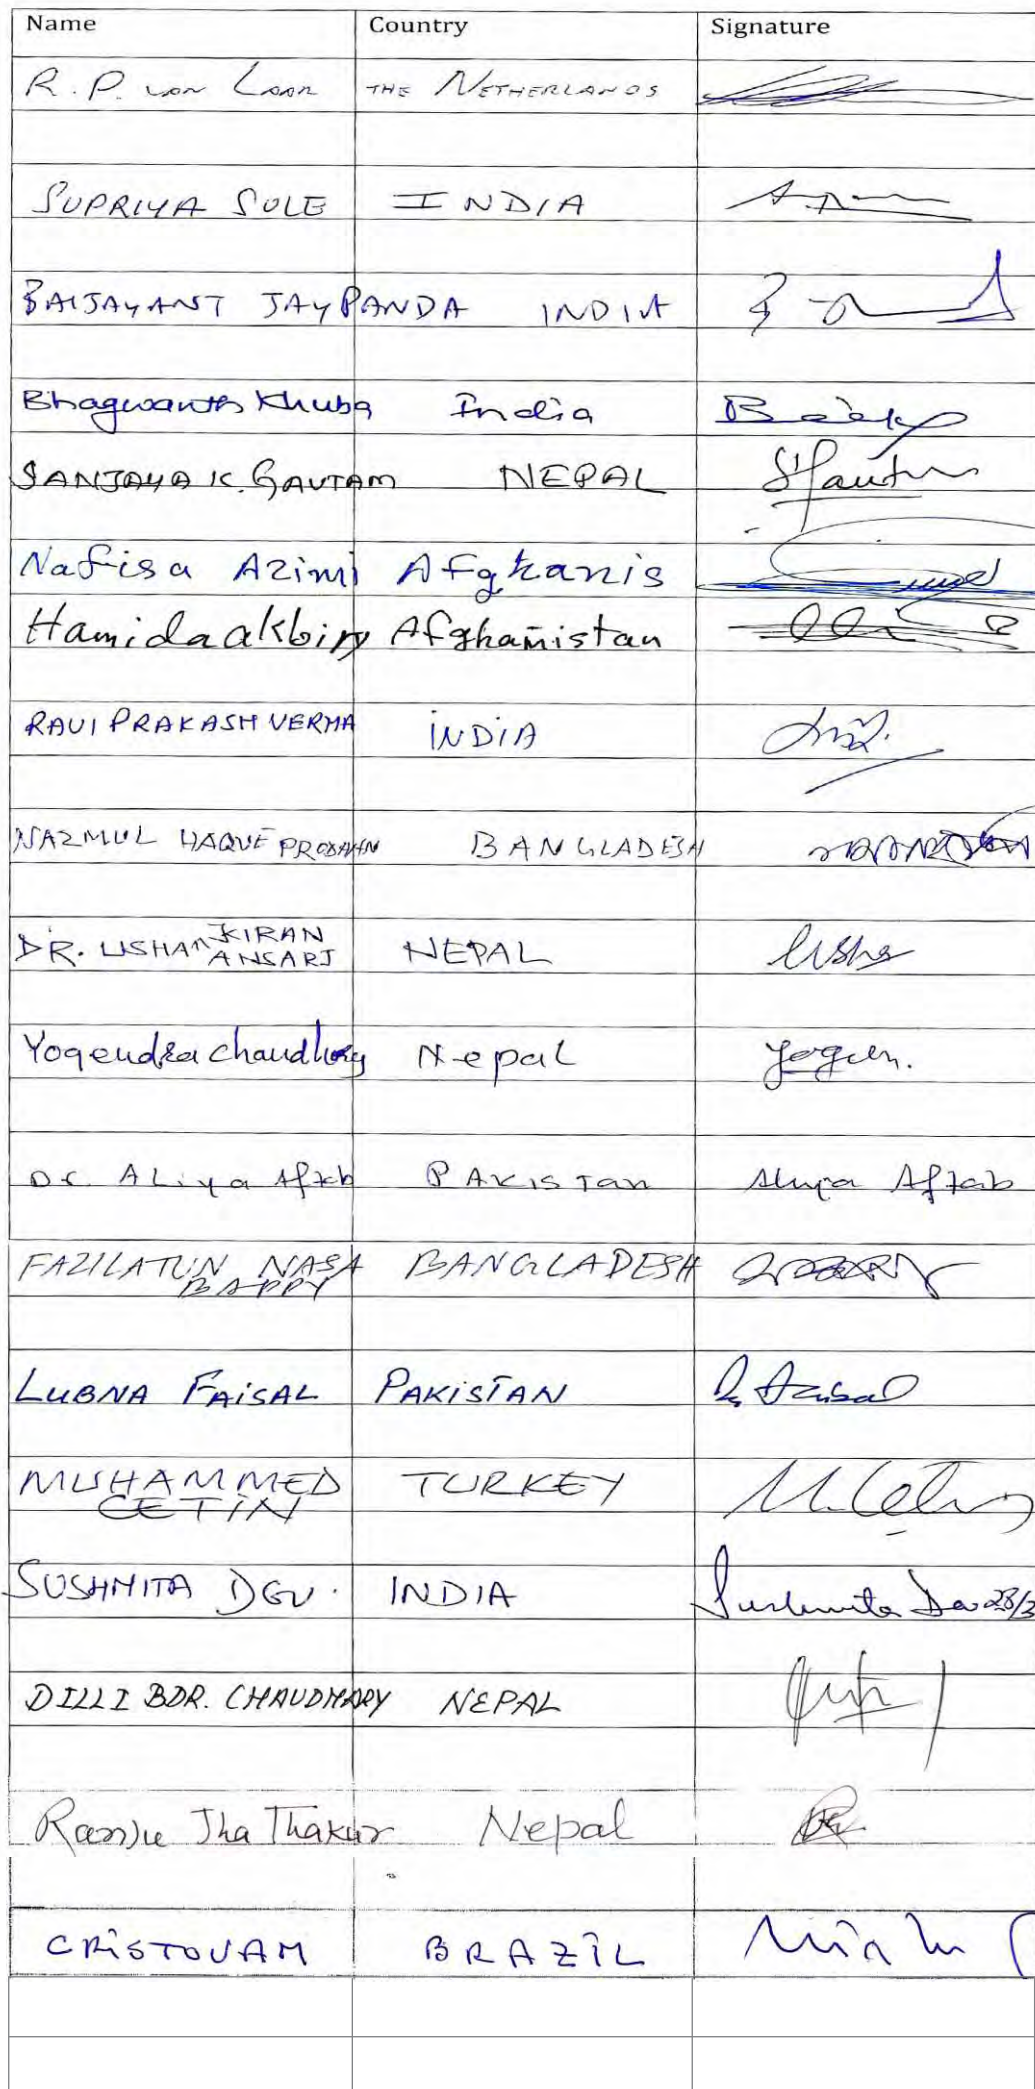 Name Country Signature
R. P. van Laar THE NETHERLANDS
SUPRIYA SULE INDIA
BAIJAYANT JAY PANDA INDIA
Bhagwanth Khuba India
SANJAYA K. GAUTAM NEPAL
Nafisa Azimi Afghanis
Hamida akbiry Afghanistan
RAVI PRAKASH VERMA INDIA
NAZMUL HAQUE PRODHAN BANGLADESH
DR. USHA KIRAN
ANSARI NEPAL Usha
Yogendra chaudhary Nepal Yogen.
Dr. ALiya Aftab PAKISTan Aliya Aftab
FAZILATUN NASA BANGLADESH
BAPPY
LUBNA FAISAL PAKISTAN L. Faisal
MUHAMMED TURKEY M. Cetin
CETIN
SUSHMITA DEV. INDIA Sushmita Dev 28/3
DILLI BDR. CHAUDHARY NEPAL
Ranju Jha Thakur Nepal
CRISTOVAM BRAZIL